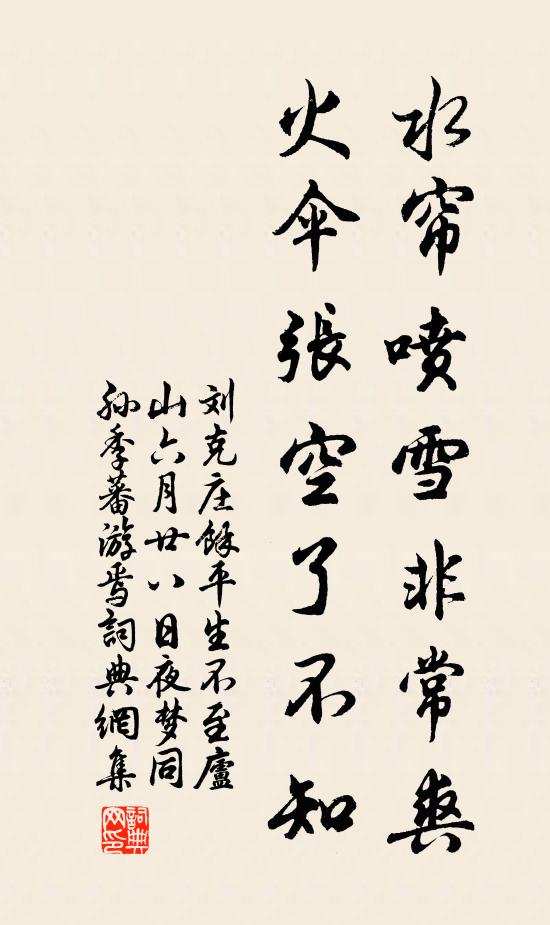 水帘喷雪非常爽
火伞張空了不知
刘克庄餘平生不至廬
山六月廿八日夜梦同
孙季蕃游焉詞典網集
詞典网印